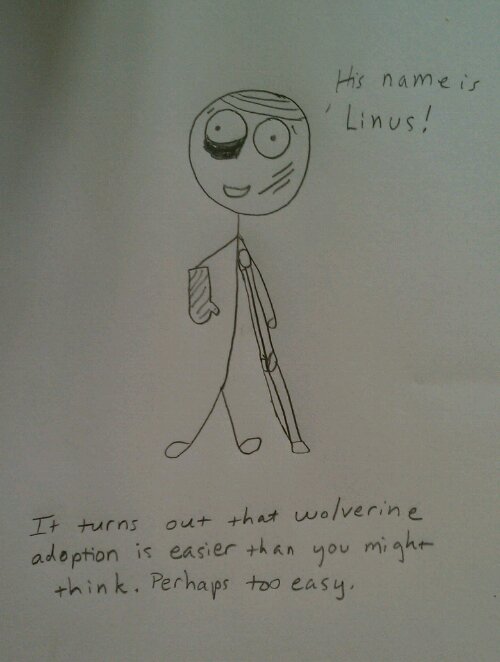 His name is
Linus!
It turns out that wolverine
adoption is easier than you might
think. Perhaps too easy.